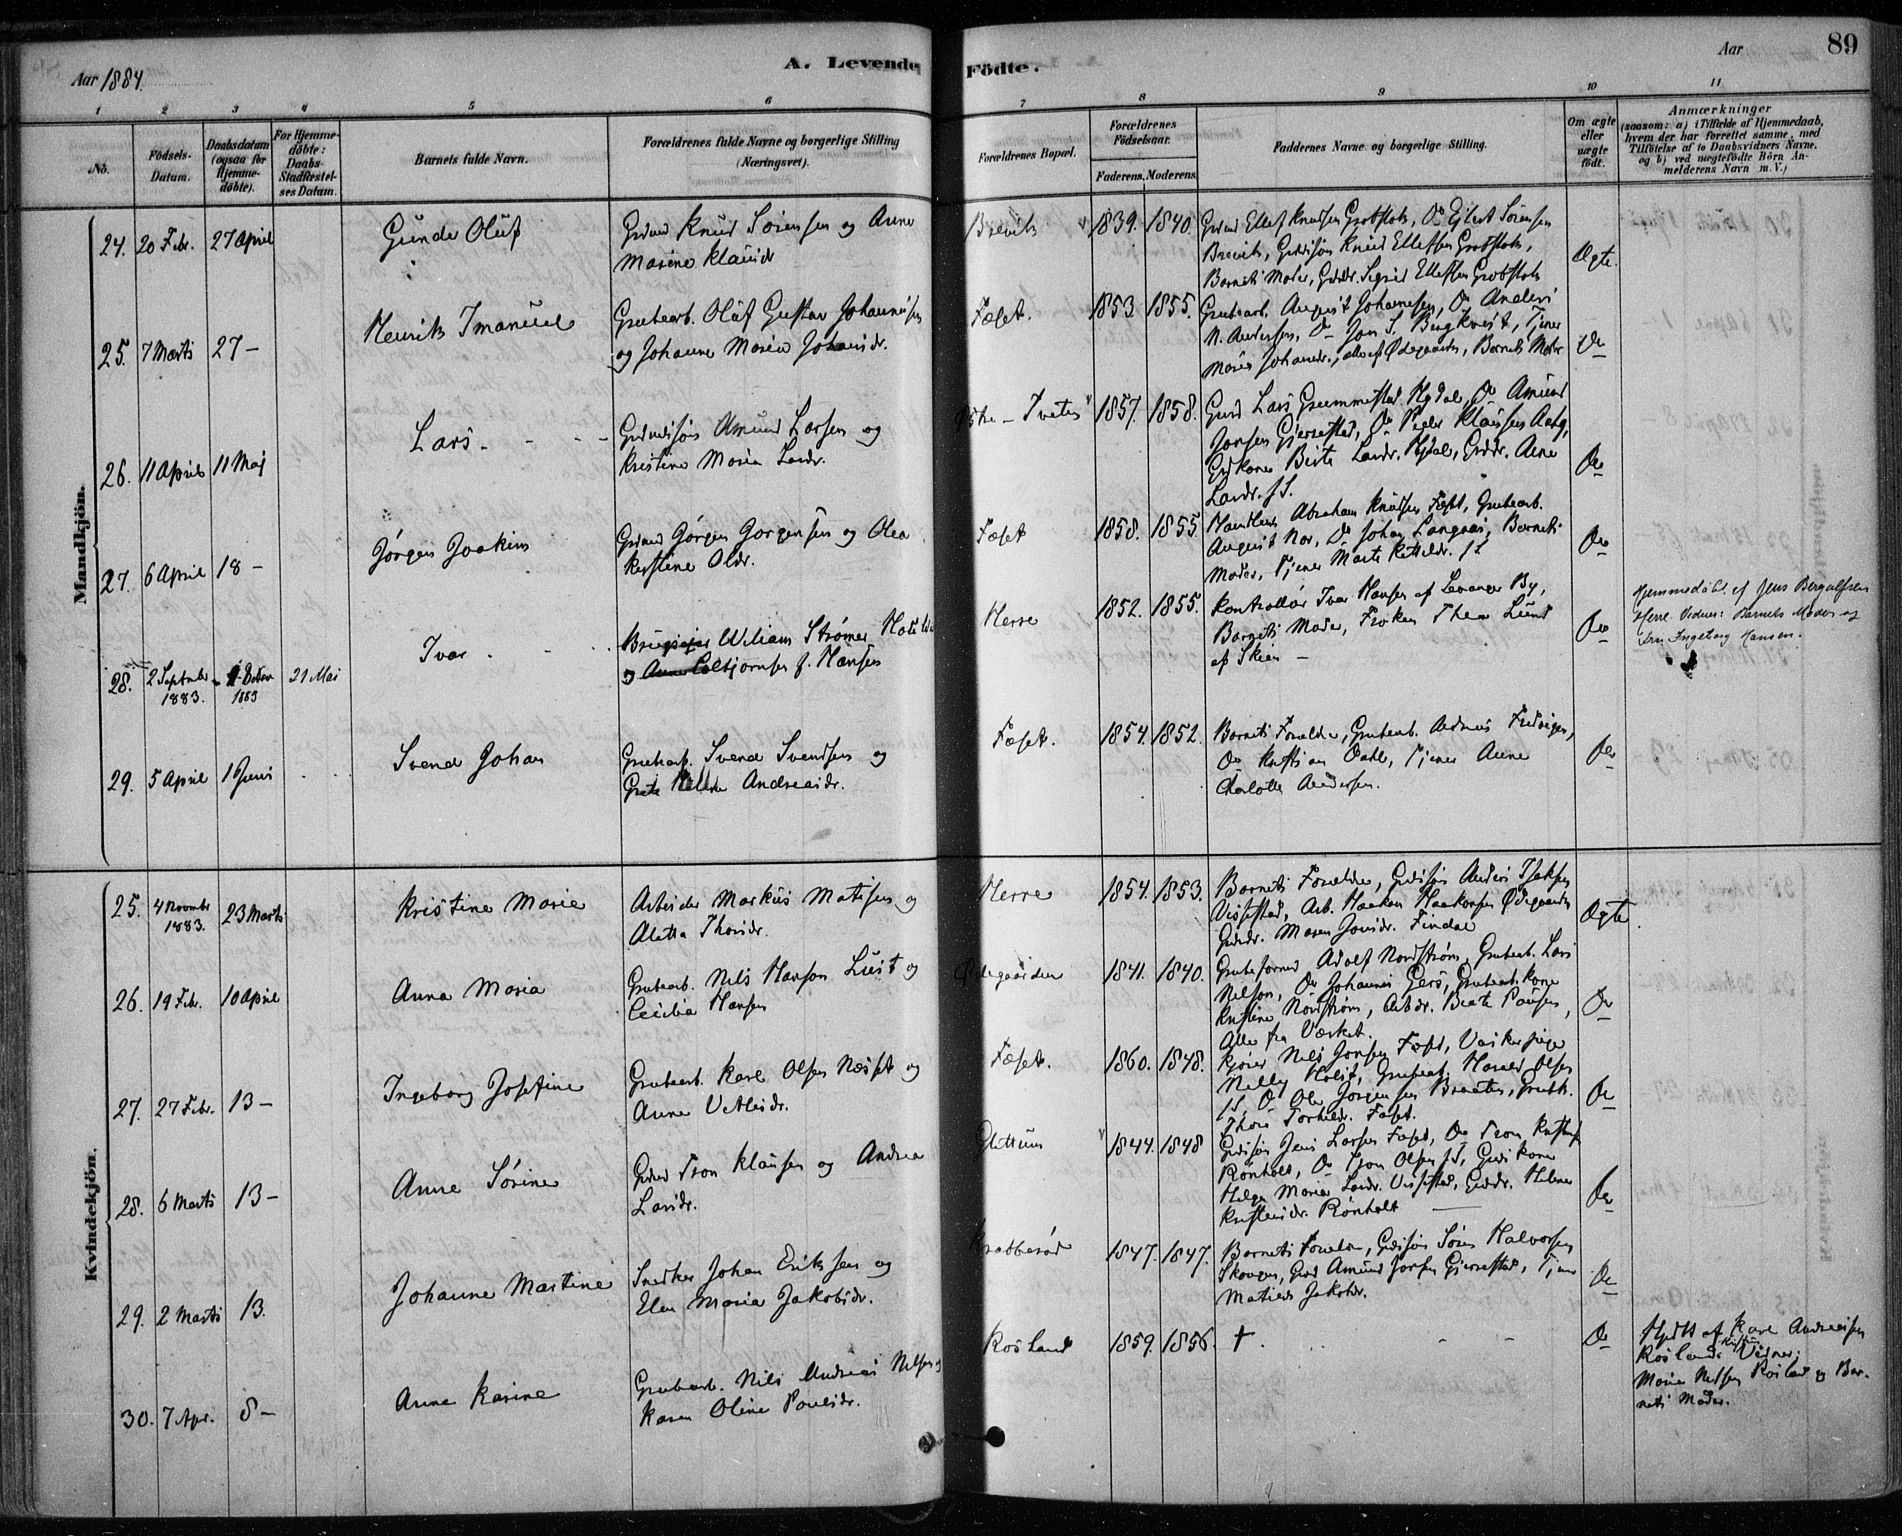 Aar 1884.
A. Levende Födte.
Aar
89
1 2 3 4 5 6 7 8 9 10 11
No.
Födsels-Datum.
Daabsdatum (ogsaa for Hjemme-döbte).
For Hjemme-döbte: Daabs-Stadfæstel-ses Datum.
Barnets fulde Navn.
Forældrenes fulde Navne og borgerlige Stilling (Næringsvei).
Forældrenes Bopæl.
Forældrenes Födselsaar.
Faderens. Moderens.
Faddernes Navne og borgerlige Stilling.
Om ægte eller uægte født.
Anmærkninger (saasom: a) i Tilfælde af Hjemmedaab, hvem der har forrettet samme, med Tilföielse af to Daabsvidners Navne, og b) ved uægtefödte Börn An-melderens Navn m. V.)
Mandkjön.
24. 20 Febr. 27 April Gunder Oluf
Grdmd Knud Sørensen og Anne
Marine Klausdr
Brevik 1839. 1840.
Grdmd Ellef Knudsen Grobstok, Do Ejlert Sørensen
Brevik, Grdsøn Knud Ellefsen Grobstok,
Barnets Moder, Grddr. Sigrid Ellefsen Grobstok
Ægte.
25. 7 Marts 27 – Henrik Imanuel
Grubearb. Oluf Gustav Johannisen
og Johanne Maria Johansdr.
Fæset. 1853 1855.
Grubearb. August Johannesen, Do Anders
N. Andersen, Do Jon S. Bergkvist, Tjener
Maria Johansdr., alle af Ødegaarden, Barnets Moder
Do
26. 11 April 11 Maj Lars
Grdmdsøn Amund Larsen og
Kristine Maria Larsdr.
Østre – Tveten 1857. 1858.
Grmd Lars Grummestad Hydal, Do Amund
Jonsen Gjerrestad, Do Peder Klausen Aaby,
Grdkone Birte Larsdr. Hydal, Grddr. Anne
Larsdr. f S.
Do
27. 6 April 18 – Jørgen Joakim
Grdmd Jørgen Jørgensen og Olea
Kirstine Olsdr.
Fæset 1858. 1855.
Handlende Abraham Knudsen Fæset, Grubearb.
August Nor, Do Johan Langaas, Barnets
Moder, Tjener Marte Kittilsdr. f S
Do
28. 2 Septmber 1883. 1 October 1883 21 Mai Ivar
Wiliam Strømer
f. Hansen
Herre 1852. 1855.
Kontrollør Ivar Hansen af Levanger By,
Barnets Moder, Frøken Thea Lund
af Skien –
Do
Hjemmedøbt af Jens Bergulfsen
Herre. Vidner: Barnets Moder og
Fru Ingeborg Hansen.
29. 5 April 1 Juni Svend Johan
Grubearb. Svend Svendsen og
Grete Helene Andreasdr.
Fæset. 1854. 1852.
Barnets Forældre, Grubearb. Andreas
Do Kristian Dahl, Tjener Anne
Charlotte Andersen.
Do
Kvindekjön.
25. 4 Novmbr 1883. 23 Marts Kristine Marie
Arbeider Markus Matisen og
Aletta Thorsdr.
Herre 1854. 1853.
Barnets Forældre, Grdsøn Anders Isaksen
Vissestad, Arb. Haakon Haakonsen Ødegaarden
Grddr. Maren Jonsdr. Findal
Ægte
26. 19 Febr. 10 April Anna Maria
Grubearb. Nils Hanson Lust og
Cecilia Hansen
Ødegaarden 1841. 1840.
Grubeformd Adolf Nordstrøm, Grubearb. Lars
Nelson, Do Johannes Gers, Grubearb.kone
Kristine Nordstrøm, Arbdr. Berte Paulsen,
Alle fra Værket.
Do
27. 27 Febr. 13 – Ingeborg Josefine
Grubearb. Karl Olsen Næset og
Anne Vetlesdr.
Fæset. 1860. 1848.
Kjører Nils Jonsen Fæset, Vaskerpige
Nelly Holst, Grubearb. Olsen
f S, Do Ole Jørgensen Braaten,
Torkildr. Fæset.
Do
28. 6 Marts 13 – Anne Sørine
Grdmd Tron Klausen og Andrea
Larsdr.
Glittum 1844. 1848
Grdsøn Jens Larsen Fæset, Do Tron Kristensen
Rønholt, Do Tron Olsen f S, Grdkone
Helga Maria Larsdr. Vissestad, Grddr. Helene
Kristensdr. Rønholt
Do
29. 2 Marts 13. Johanne Martine
Snedker Johan Eriksen og
Elen Maria Jakobsdr.
Krabberød 1847. 1847.
Barnets Forældre, Grdsøn Søren Halvorsen
Skougen, Grmd Amund Jonsen Gjerrestad, Tjener
Jakobsdr.
Do
30. 7 Apr. 8 – Anne Karine
Grubearb. Nils Andreas Nilsen og
Karen Oline Poulsdr.
Rosland 1859. 1856. +.
Do
Hjdbt af Karl Andreassen
Rosland. Vidner:
Maria Nilsen Rosland og Bar-
nets Moder.